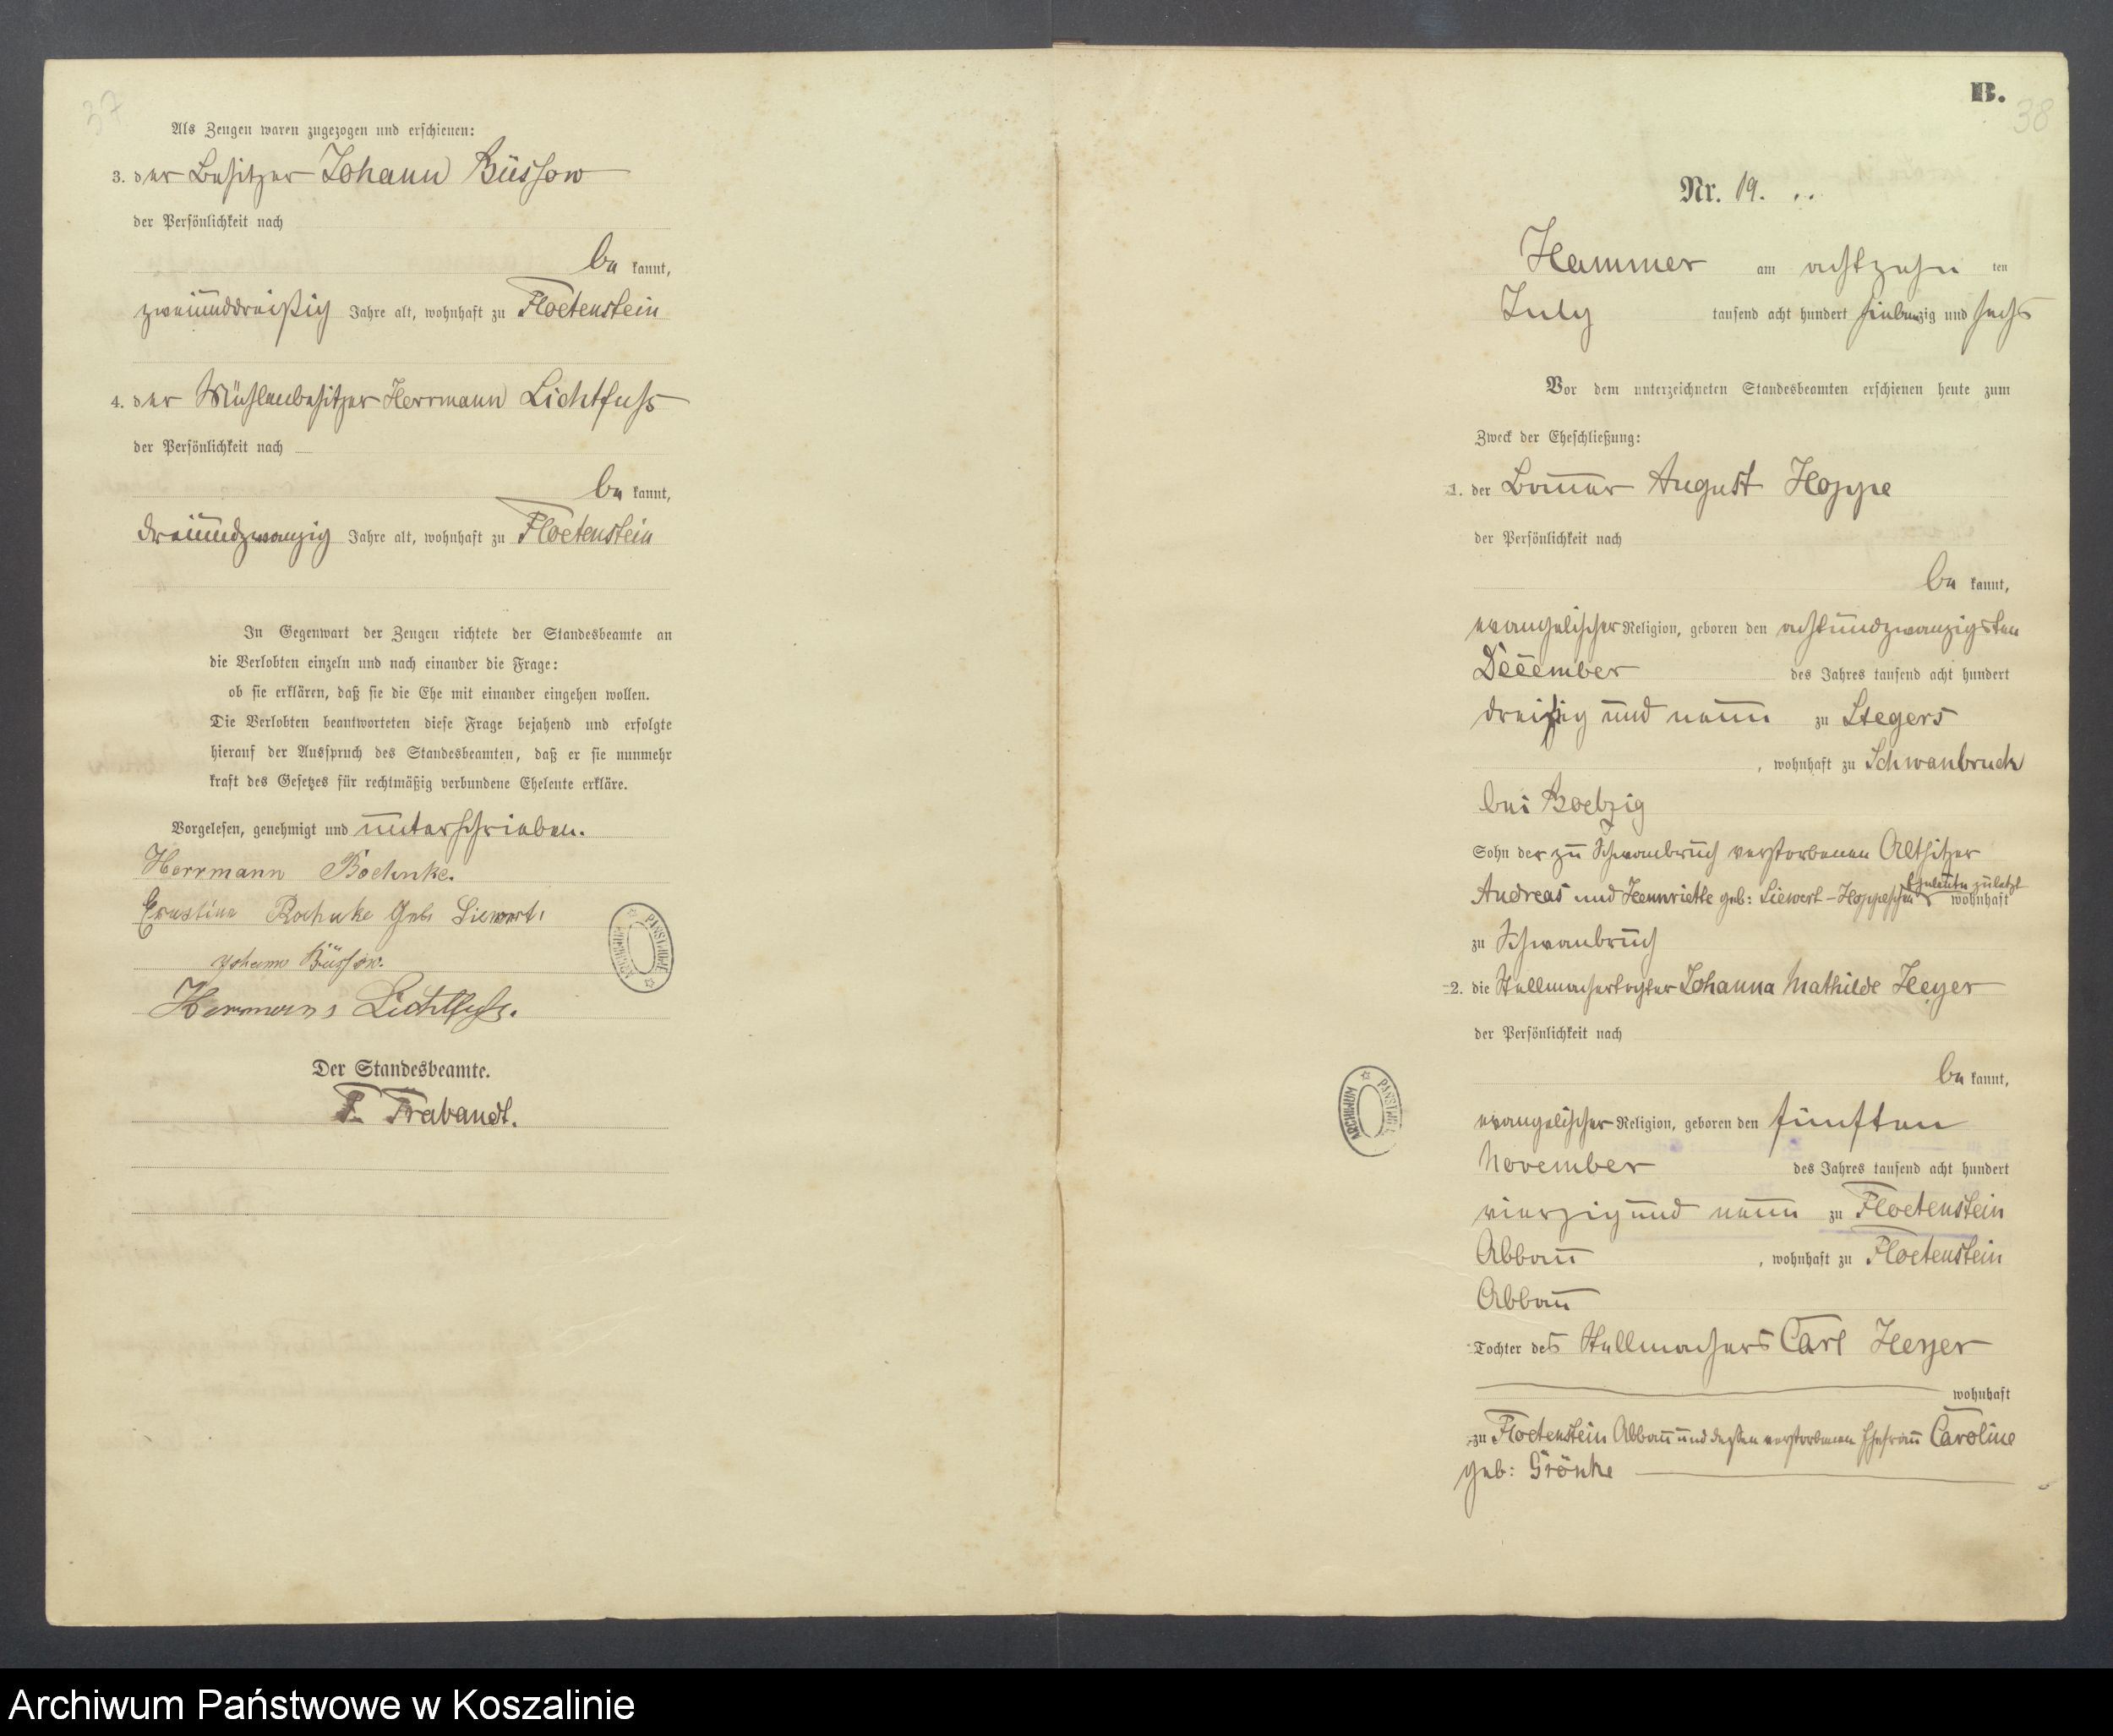 37
Als Zeugen waren zugezogen und erschienen:
3. der Besitzer Johann Büssow
der Persönlichkeit nach
be kannt,
zweiunddreißig Jahre alt, wohnhaft zu Floetenstein
4. der Mühlenbesitzer Herrmann Lichtfuss
der Persönlichkeit nach
be kannt,
dreiundzwanzig Jahre alt, wohnhaft zu Floetenstein
In Gegenwart der Zeugen richtete der Standesbeamte an
die Verlobten einzeln und nach einander die Frage:
ob sie erklären, daß sie die Ehe mit einander eingehen wollen.
Die Verlobten beantworteten diese Frage bejahend und erfolgte
hierauf der Ausspruch des Standesbeamten, daß er sie nunmehr
kraft des Gesetzes für rechtmäßig verbundene Eheleute erkläre.
Vorgelesen, genehmigt und unterschrieben.
Herrmann Boehnke.
Ernstine Boehnke geb. Siewert.
Johann Büssow.
Hermann Lichtfuss.
ARCHIWUM PAŃSTWOWE
Der Standesbeamte.
F. Trabandt.
B.
38
Nr. 19.
Hammer am achtzehn ten
July tausend acht hundert siebenzig und sechs
Vor dem unterzeichneten Standesbeamten erschienen heute zum
Zweck der Eheschließung:
1. der Bauer August Hoppe
der Persönlichkeit nach
be kannt,
evangelischer Religion, geboren den achtundzwanzigsten
December des Jahres tausend acht hundert
dreißig und neun zu Stegers
, wohnhaft zu Schwanbruch
bei Boelzig
Sohn der zu Schwanbruch verstorbenen Altsitzer
Andreas und Hennriette geb: Siewert-Hoppeschen Eheleute zuletzt wohnhaft
zu Schwanbruch
2. die Stellmachertochter Johanna Mathilde Heyer
der Persönlichkeit nach
be kannt,
evangelischer Religion, geboren den fünften
November des Jahres tausend acht hundert
vierzig und neun zu Floetenstein
Abbau , wohnhaft zu Floetenstein
Abbau
Tochter des Stellmachers Carl Heyer
wohnhaft
zu Floetenstein Abbau und dessen verstorbenen Ehefrau Caroline
geb: Grönke
ARCHIWUM PAŃSTWOWE
Archiwum Państwowe w Koszalinie